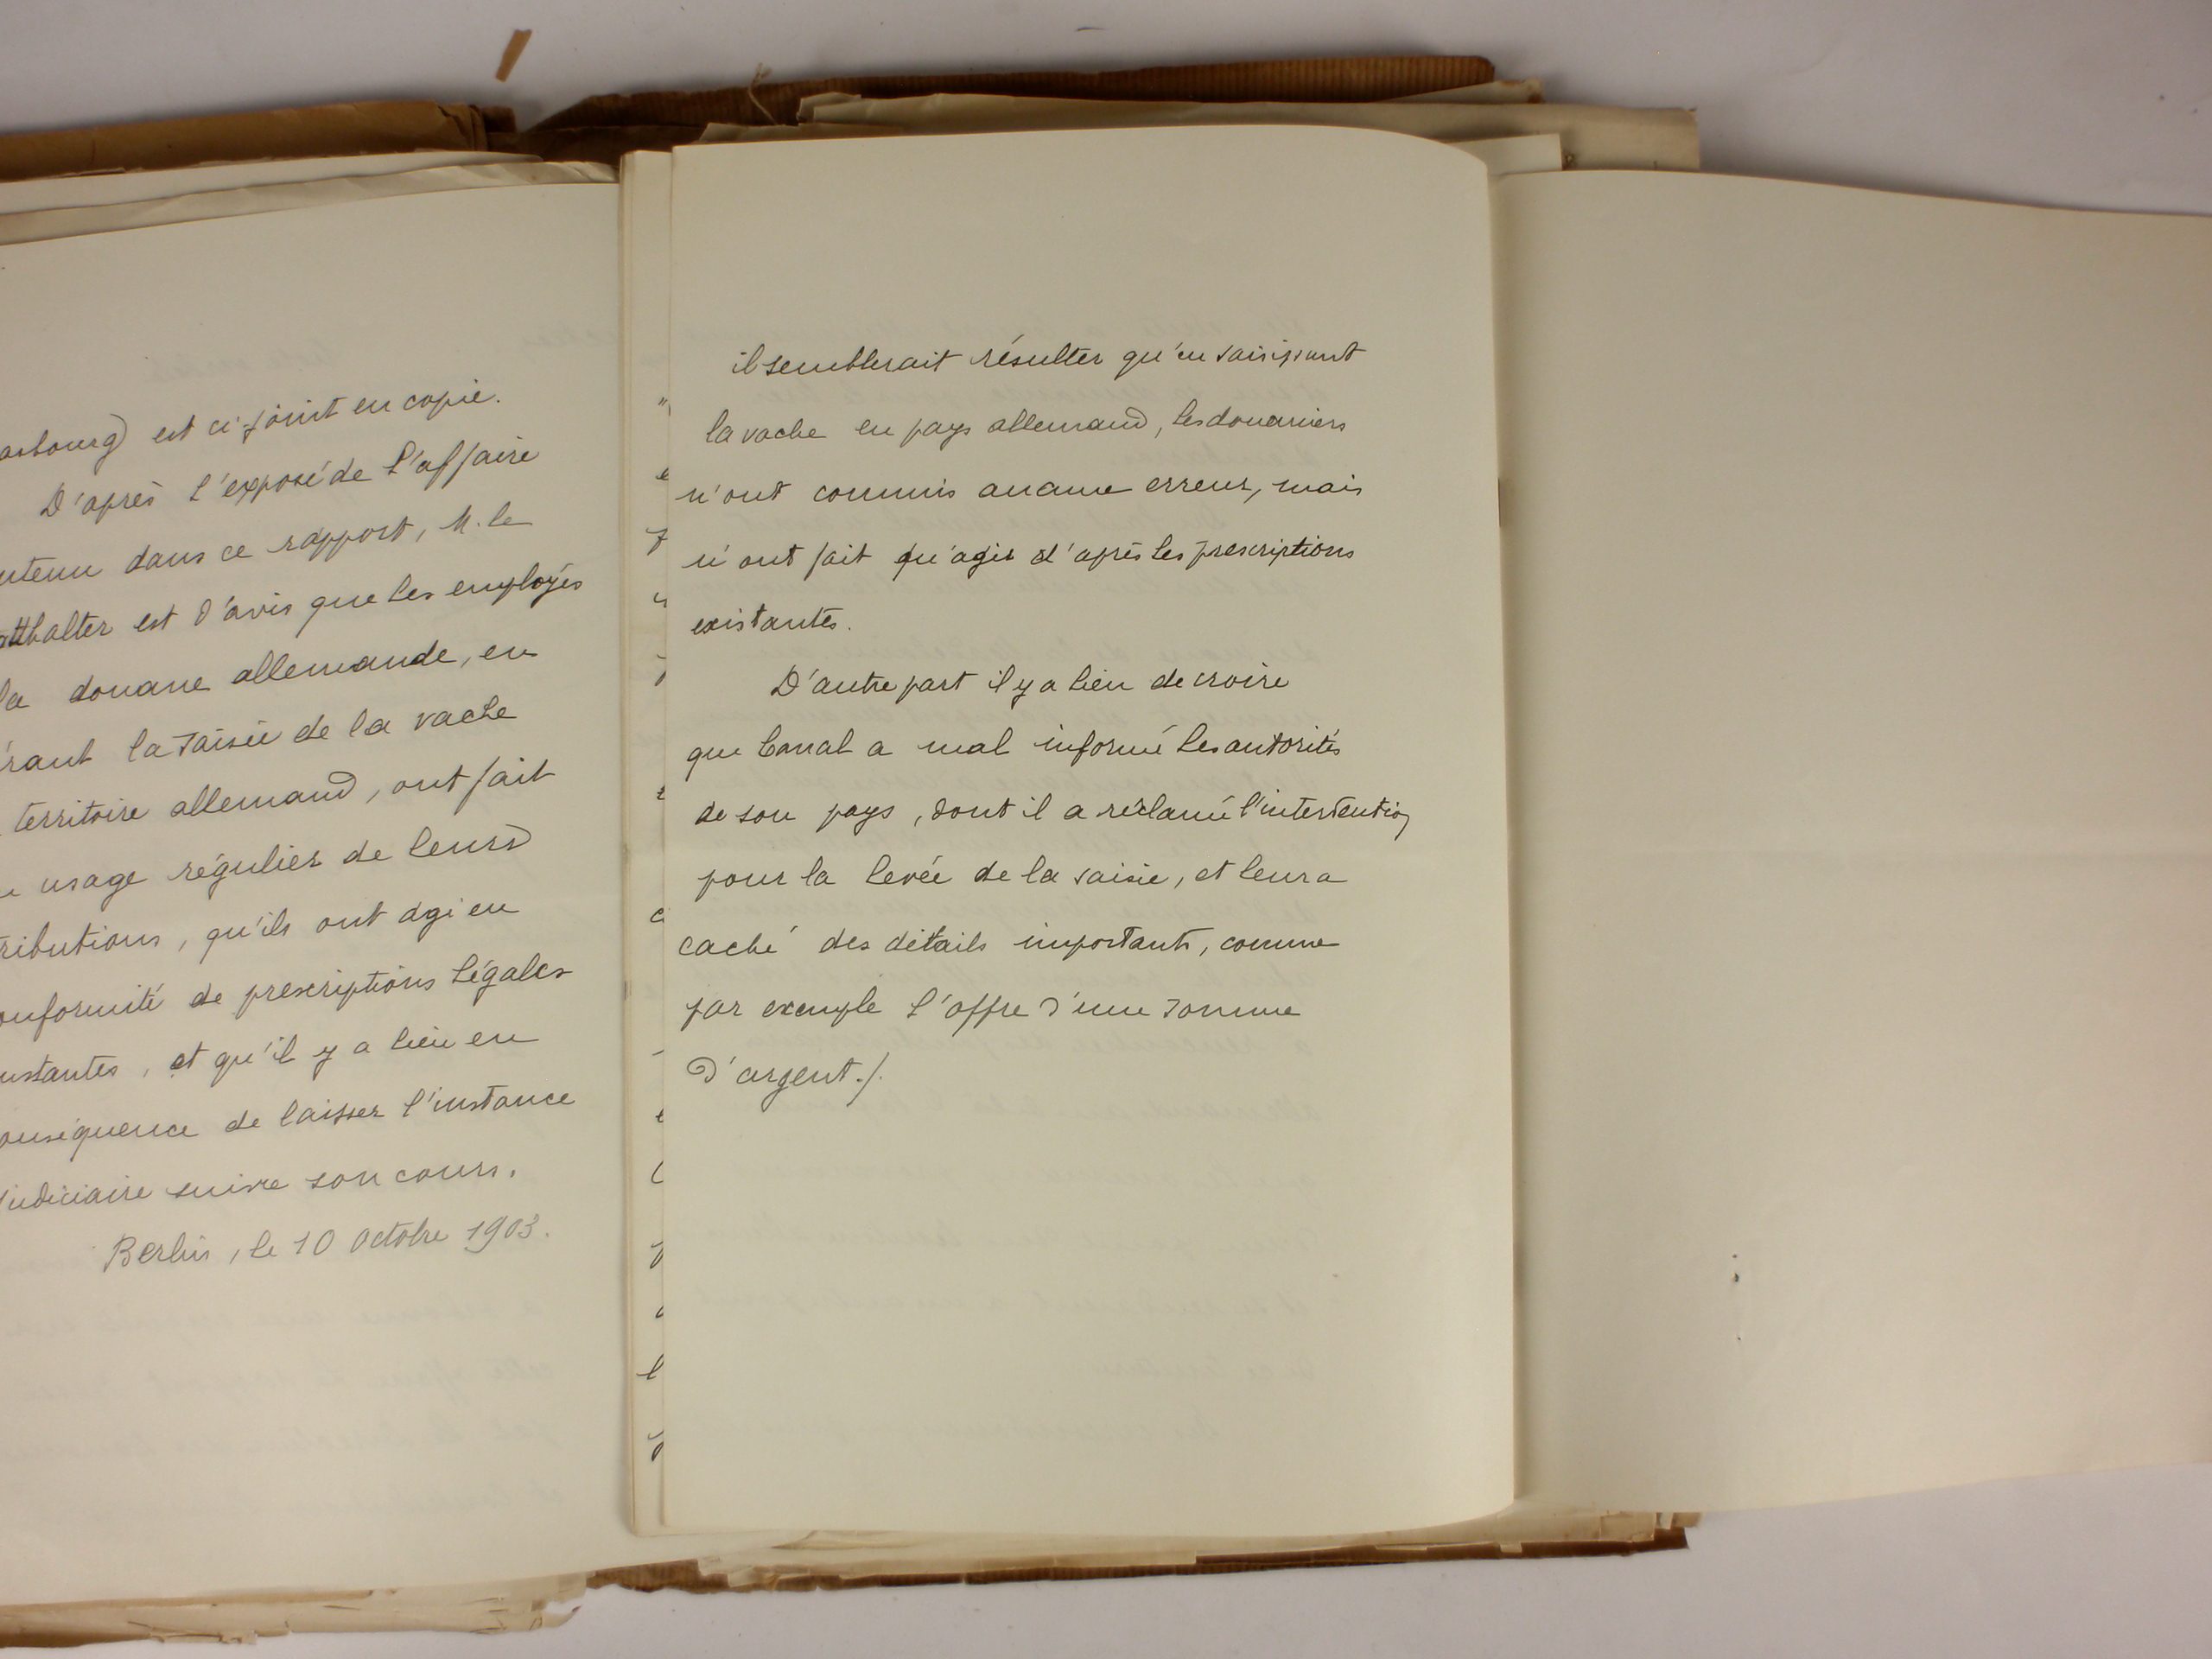 asbourg) est ci-joint en copie.
D'après l'exposé de l'affaire
ntenu dans ce rapport, M. le
atthalter est d'avis que les employés
la douane allemande, en
érant la saisie de la vache
territoire allemand, ont fait
usage régulier de leurs
tributions, qu'ils ont agi en
onformité de prescriptions légales
et qu'il y a lieu en
onséquence de laisser l'instance
judiciaire suivre son cours.
Berlin, le 10 octobre 1903.
il semblerait résulter qu'en saisissant
la vache en pays allemand, les douaniers
n'ont commis aucune erreur, mais
n'ont fait qu'agir d'après les prescriptions
existantes.
D'autre part il y a lieu de croire
que Canal a mal informé les autorités
de son pays, dont il a réclamé l'intervention
pour la levée de la saisie, et leur a
caché des détails importants, comme
par exemple l'offre d'une somme
d'argent./.